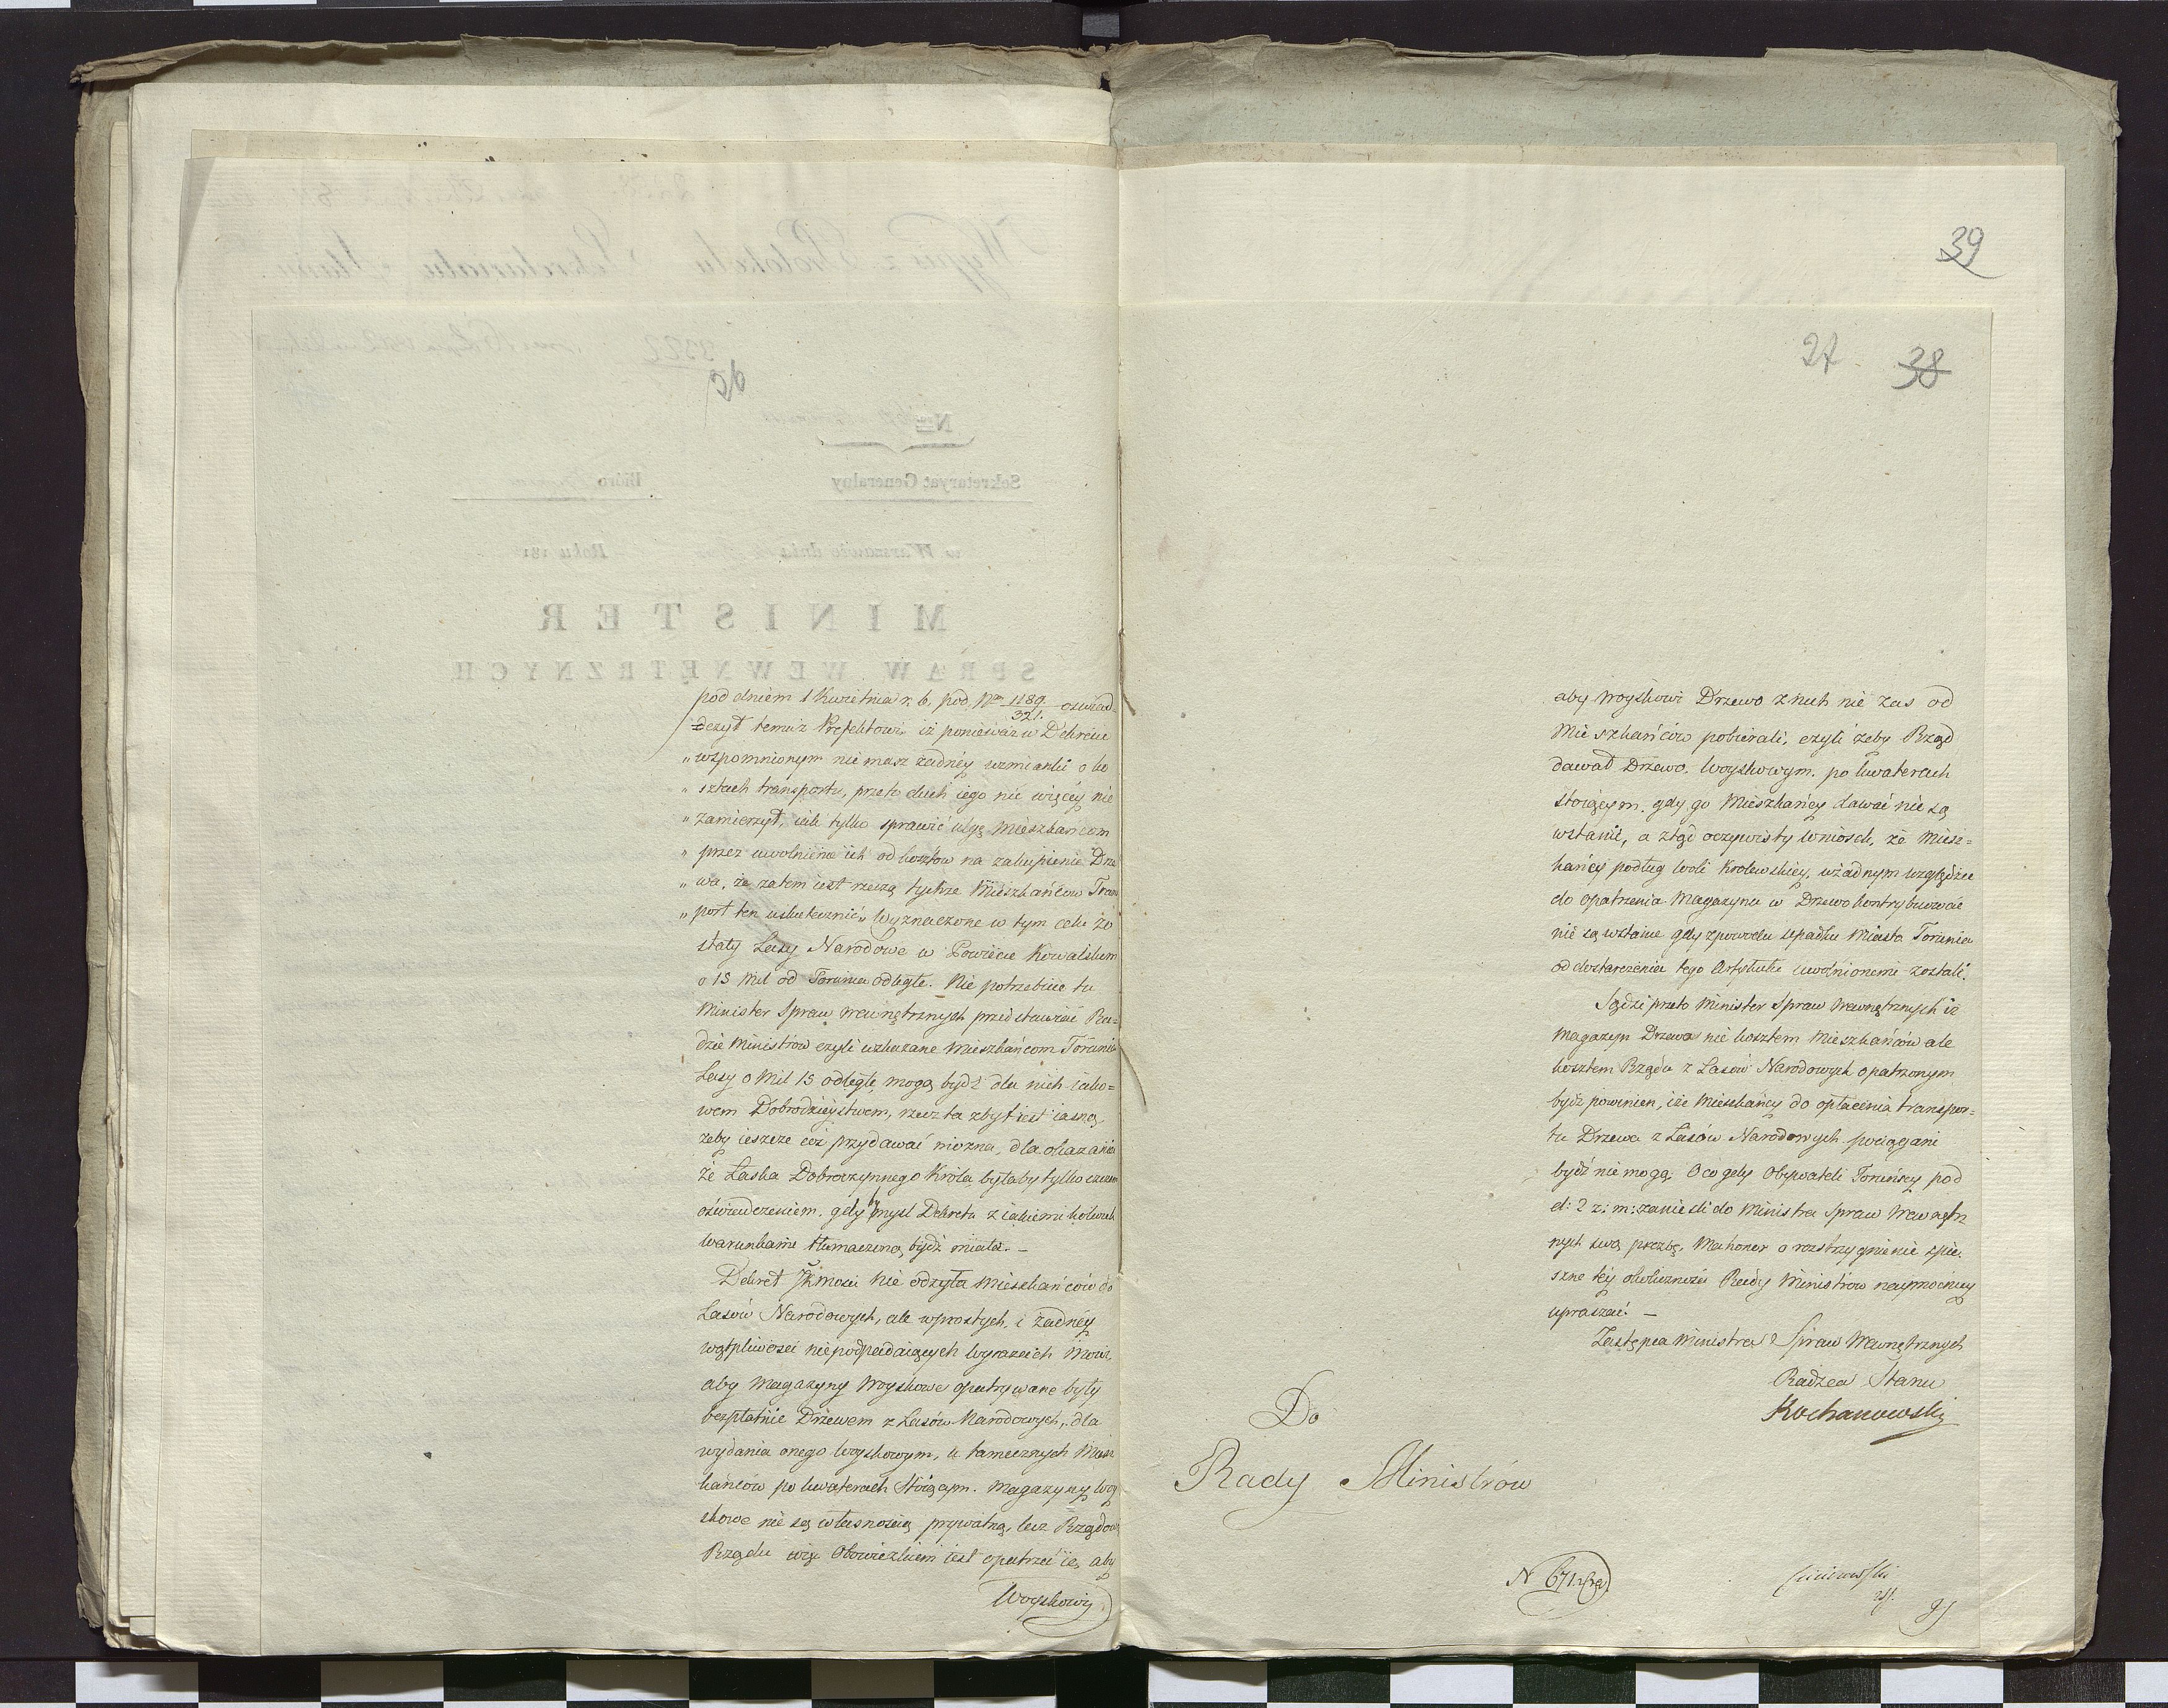 pod dniem 1 Kwietnia r. b. pod Nrem 1189/321. oświad-
czył temuż Prefektowi, iż ponieważ w Dekrecie
„ wspomnionym nie masz żadnéy wzmianki o ko
„ sztach transportu, przeto duch iego nic więcéy nie
„ zamierzył, iak tylko sprawić ulgę Mieszkańcom
„ przez uwolnienie ich od kosztów na zakupienie Drze
„ wa, że zatem iest rzeczą tychże Mieszkańców Trans
„ port ten uskutecznić„ Wyznaczone w tym celu zo
stały Lasy Narodowe w Powiecie Kowalskim
o 15 Mil od Torunia odległe. Nie potrzebuie tu
Minister Spraw Wewnętrznych przedstawiać Ra=
dzie Ministrów czyli wskazane Mieszkańcom Torunia
Lasy o Mil 15 odległe mogą bydź dla nich iako=
wem Dobrodzieystwem, rzecz ta zbyt iest iasną,
żeby ieszcze coś przydawać można, dla okazania
że Łaska Dobroczynnego Króla byłaby tylko czczem
oświadczeniem, gdyby myśl Dekretu z iakiemi kolwiek
warunkami tłumaczoną bydź miała. —
Dekret JKMości nie odzyła Mieszkańców do
Lasów Narodowych, ale w prostych, i żadnéy
wątpliwości nie podpadaiących wyrazach mówi,
aby Magazyny Woyskowe opatrywane były
bezpłatnie Drzewem z Lasów Narodowych, dla
wydania onego Woyskowym, u tamecznych Miesz
kańców po kwaterach stoiącym. Magazyny Woy
skowe nie są własnością prywatną, lecz Rządową
Rządu więc Obowiązkiem iest opatrzeć ie, aby
Woyskowi
39
27 38
aby Woyskowi Drzewo z nich nie zaś od
Mieszkańców pobierali, czyli żeby Rząd
dawał Drzewo, Woyskowym po kwaterach
stoiącym, gdy go Mieszkańcy dawać nie są
w stanie, a ztąd oczywisty wniosek, że Miesz=
kańcy podług woli Królewskiey, w żadnym względzie
do opatrzenia Magazynu w Drzewo kontrybuować
nie są w stanie gdy z powodu upadku Miasta Torunia
od dostarczenia tego Artykułu uwolnionemi zostali.
Sądzi przeto Minister Spraw Wewnętrznych iż
Magazyn Drzewa nie kosztem Mieszkańców ale
kosztem Rządu z Lasów Narodowych opatrzonym
bydź powinien, i że Mieszkańcy do opłacenia transpor=
tu Drzewa z Lasów Narodowych pociągani
bydź nie mogą. O co gdy Obywateli Toruńscy pod
d: 2 z: m: zanieśli do Ministra Spraw Wewnętrz
nych swą prozbę, Ma honor o rozstrzygnienie spie,
szne téy okoliczności Rady Ministrów naymocniey
upraszać. —
Zastępca Ministra Spraw Wewnętrznych
Radzca Stanu
Kochanowski
Do
Rady Ministrów